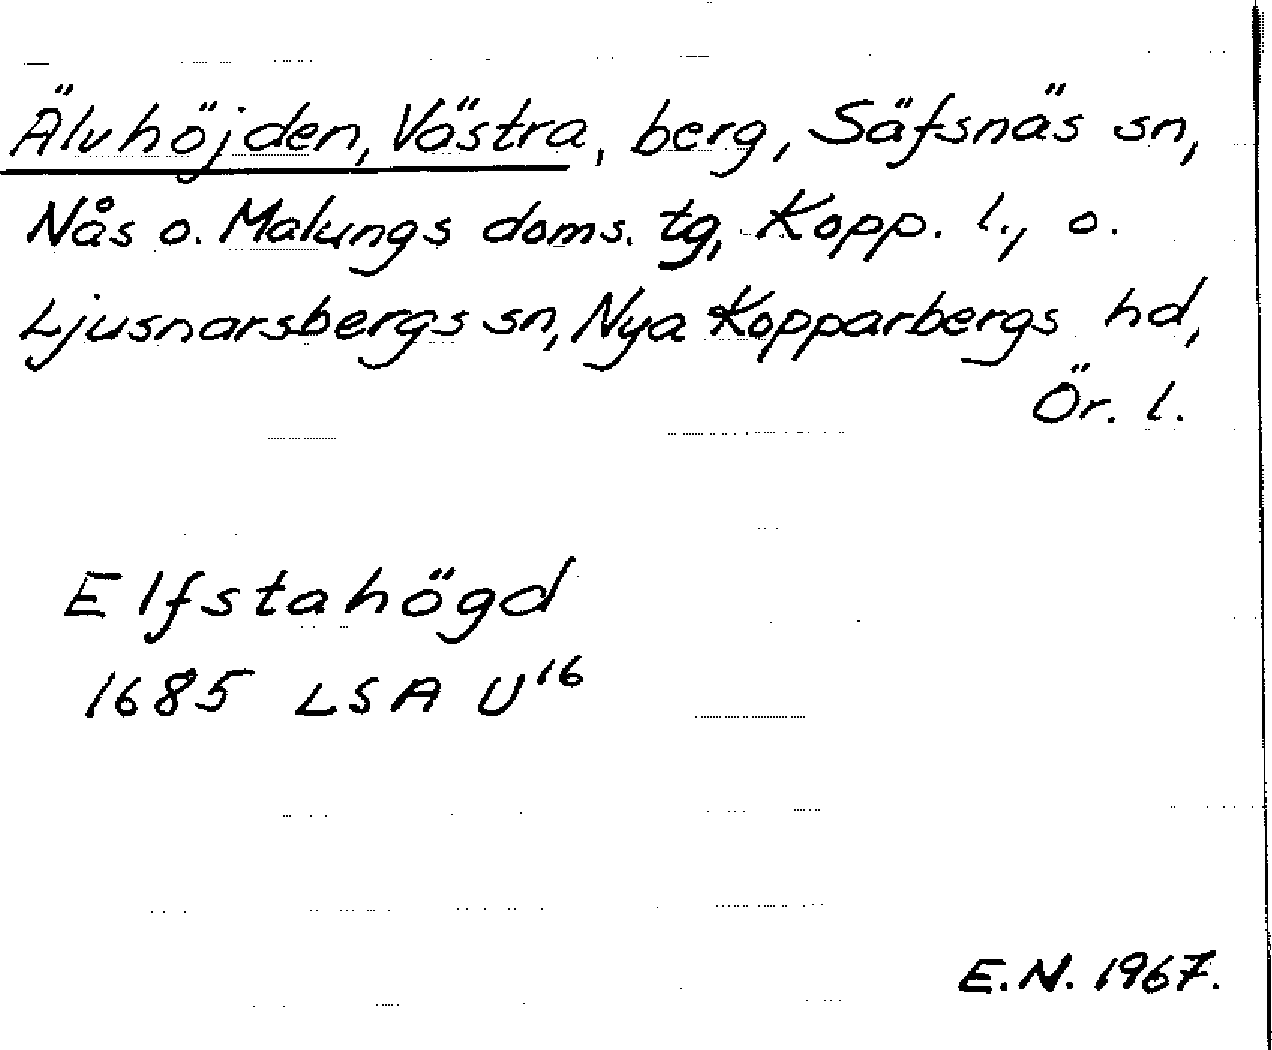 Älvhöjden, Västra, berg, Säfsnäs sn,
Nås o. Malungs doms. tg, Kopp. l., o.
Ljusnarsbergs sn, Nya Kopparbergs hd,
Ör. l.
Elfstahögd
1685 LSA U16
E.N. 1967.